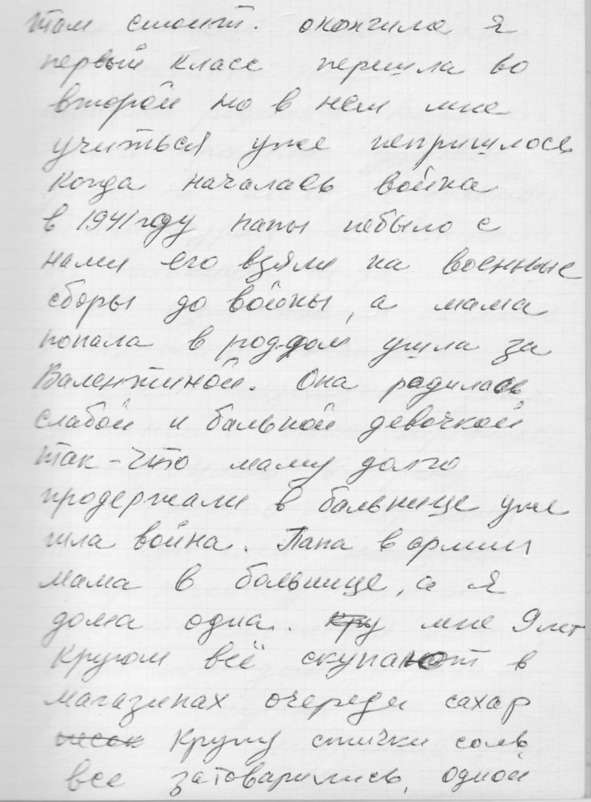 там стоит. окончила я
первый класс перешла во
второй но в нём мне
учиться уже непришлось
когда началась война
в 1941 году папы небыло с
нами его взяли на военные
сборы до войны, а мама
попала в род-дом ушла за
Валентиной. Она родилась
слабой и бальной девочкой
так-что маму долго
продержали в бальнице уже
шла война. Папа в армии
мама в больнице, а я
дома одна. кру мне 9 лет
кругом всё скупают в
магазинах очереди сахар
песок крупу спички соль
все затоварились, одной